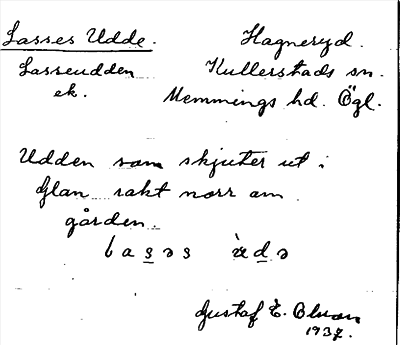 Lasses Udde. Hagneryd.
Lasseudden Kullerstads sn.
ek. Memmings hd. Ögl.
Udden som skjuter ut i
Glan rakt norr om
gården.
Gustaf E. Olson
1937.